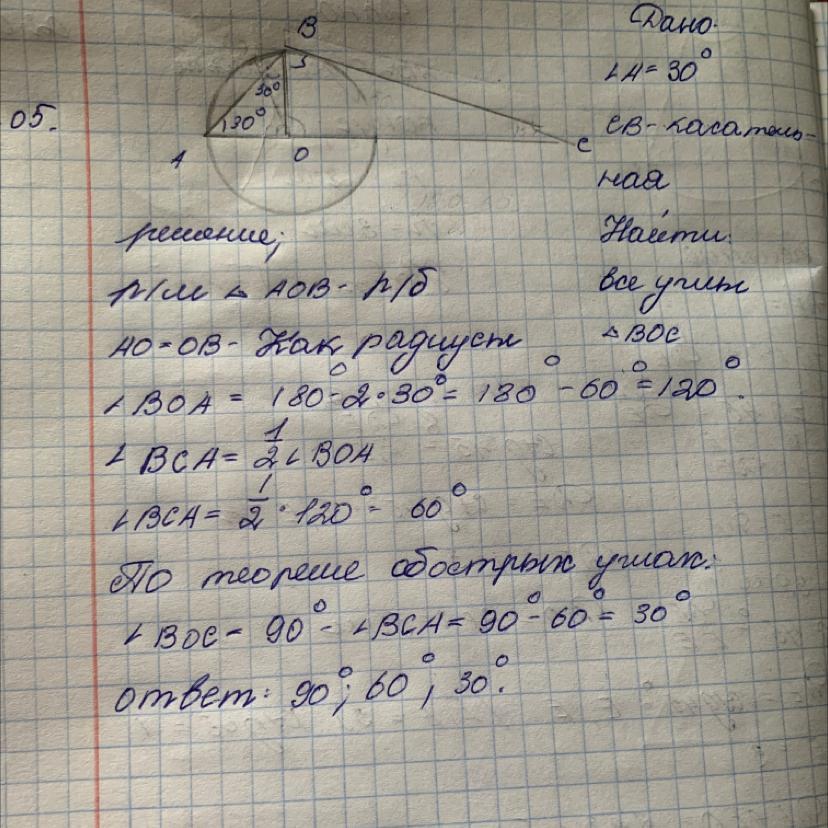 05.
B
30°
30°
A
O
C
Дано:
∠A = 30°
CB - касатель-
ная
Найти:
все углы
△BOC
решение;
р/м △ AOB - р/б
AO = OB - Как радиусы
∠BOA = 180° - 2 · 30° = 180° - 60° = 120°.
∠BCA = 1/2 ∠BOA
∠BCA = 1/2 · 120° = 60°
По теореме обострых углах:
∠BOC = 90° - ∠BCA = 90° - 60° = 30°
ответ: 90°; 60°; 30°.